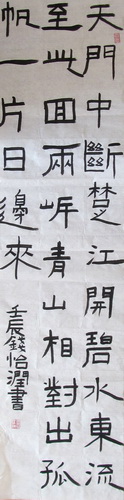 天門中斷楚江開碧水東流
至此回兩岸青山相對出孤
帆一片日邊來
壬辰錢怡潤書